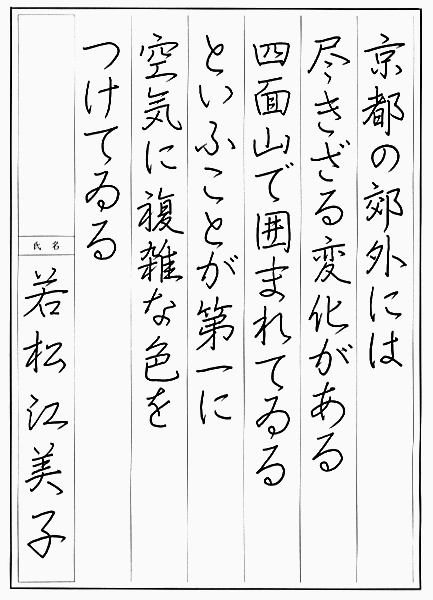 京都の郊外には
尽きざる変化がある
四面山で囲まれてゐる
といふことが第一に
空気に複雑な色を
つけてゐる
氏名
若松江美子